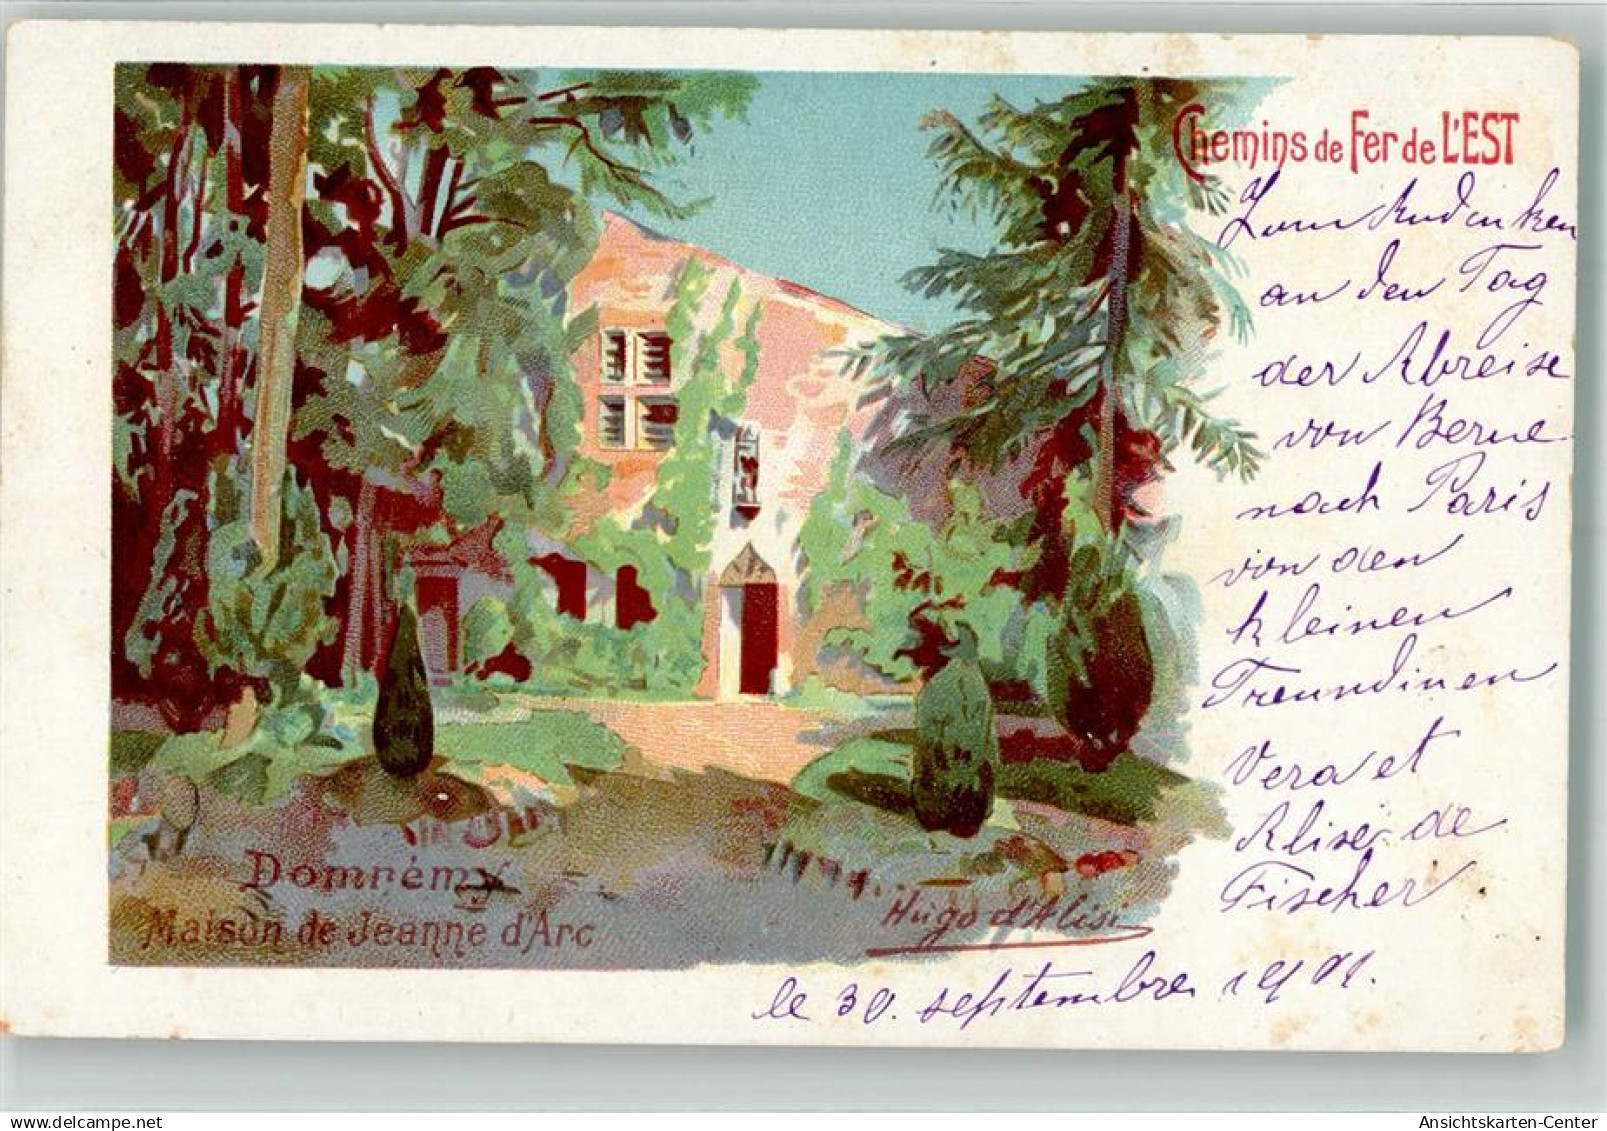 Chemins de Fer de L'EST
Zum Andenken
an den Tag
der Abreise
von Berne
nach Paris
von den
kleinen
Freundinen
Vera et
Alise de
Fischer
le 30. septembre 1901.
Domrémy
Maison de Jeanne d'Arc
Hugo d'Alési
Ansichtskarten-Center